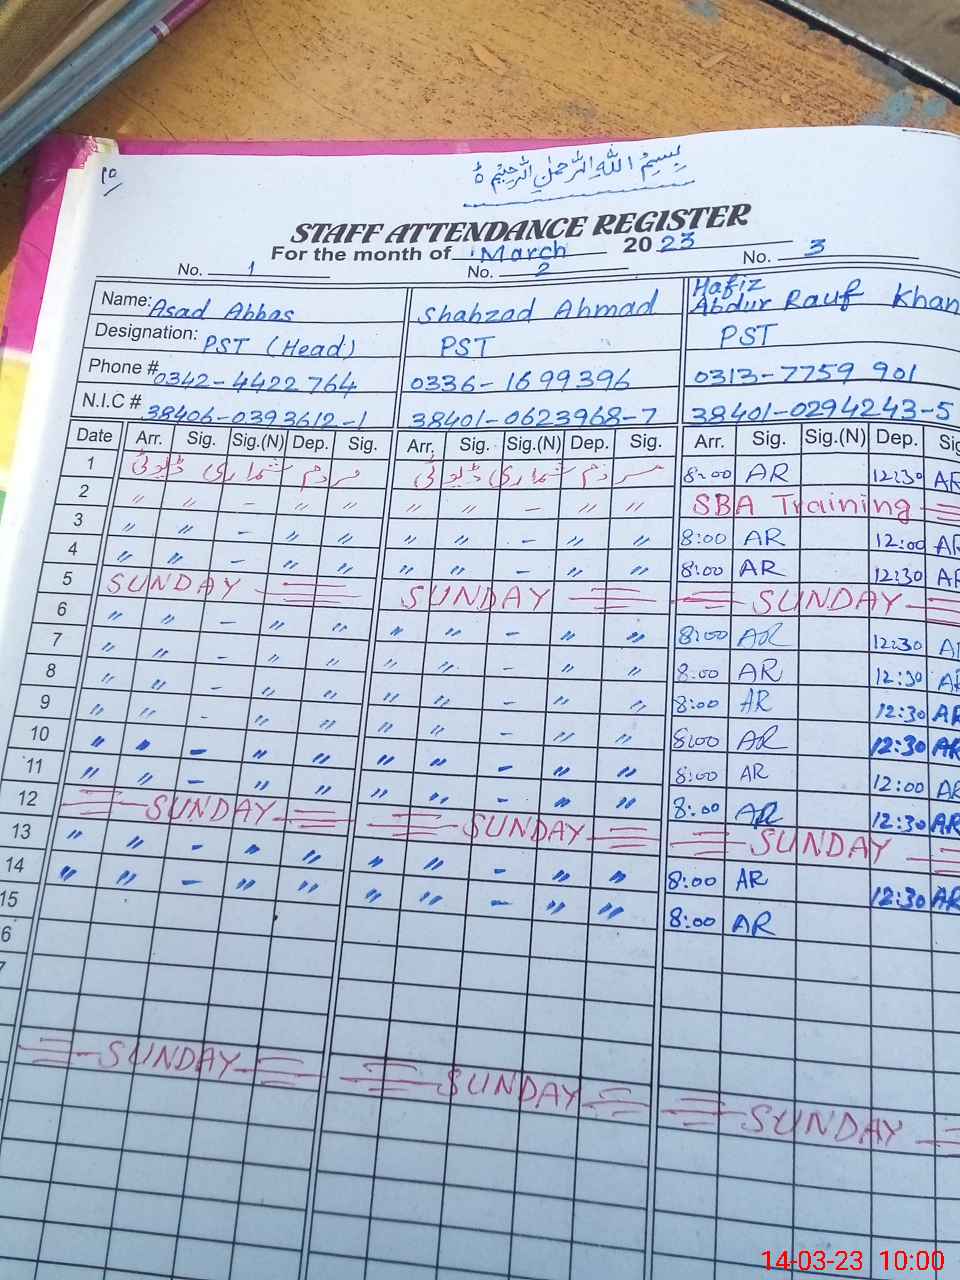 ١٥
بِسْمِ اللّٰهِ الرَّحْمٰنِ الرَّحِيْمِ
STAFF ATTENDANCE REGISTER
For the month of March 2023
No. 1 No. 2 No. 3
Name: Asad Abbas Shahzad Ahmad Hafiz Abdur Rauf Khan
Designation: PST (Head) PST PST
Phone # 0342-4422764 0336-1699396 0313-7759901
N.I.C # 38406-0393612-1 38401-0623968-7 38401-0294243-5
Date Arr. Sig. Sig.(N) Dep. Sig. Arr. Sig. Sig.(N) Dep. Sig. Arr. Sig. Sig.(N) Dep. Sig
1 مردم شماری ڈیوٹی مردم شماری ڈیوٹی 8:00 AR 12:30 AR
2 〃 〃 - 〃 〃 〃 〃 - 〃 〃 SBA Training
3 〃 〃 - 〃 〃 〃 〃 - 〃 〃 8:00 AR 12:00 AR
4 〃 〃 - 〃 〃 〃 〃 - 〃 〃 8:00 AR 12:30 AR
5 SUNDAY SUNDAY SUNDAY
6 〃 〃 - 〃 〃 〃 〃 - 〃 〃 8:00 AR 12:30 AR
7 〃 〃 - 〃 〃 〃 〃 - 〃 〃 8:00 AR 12:30 AR
8 〃 〃 - 〃 〃 〃 〃 - 〃 〃 8:00 AR 12:30 AR
9 〃 〃 - 〃 〃 〃 〃 - 〃 〃 8:00 AR 12:30 AR
10 〃 〃 - 〃 〃 〃 〃 - 〃 〃 8:00 AR 12:00 AR
11 〃 〃 - 〃 〃 〃 〃 - 〃 〃 8:00 AR 12:30 AR
12 SUNDAY SUNDAY SUNDAY
13 〃 〃 - 〃 〃 〃 〃 - 〃 〃 8:00 AR 12:30 AR
14 〃 〃 - 〃 〃 〃 〃 - 〃 〃 8:00 AR
15
6
7
SUNDAY SUNDAY SUNDAY
14-03-23 10:00